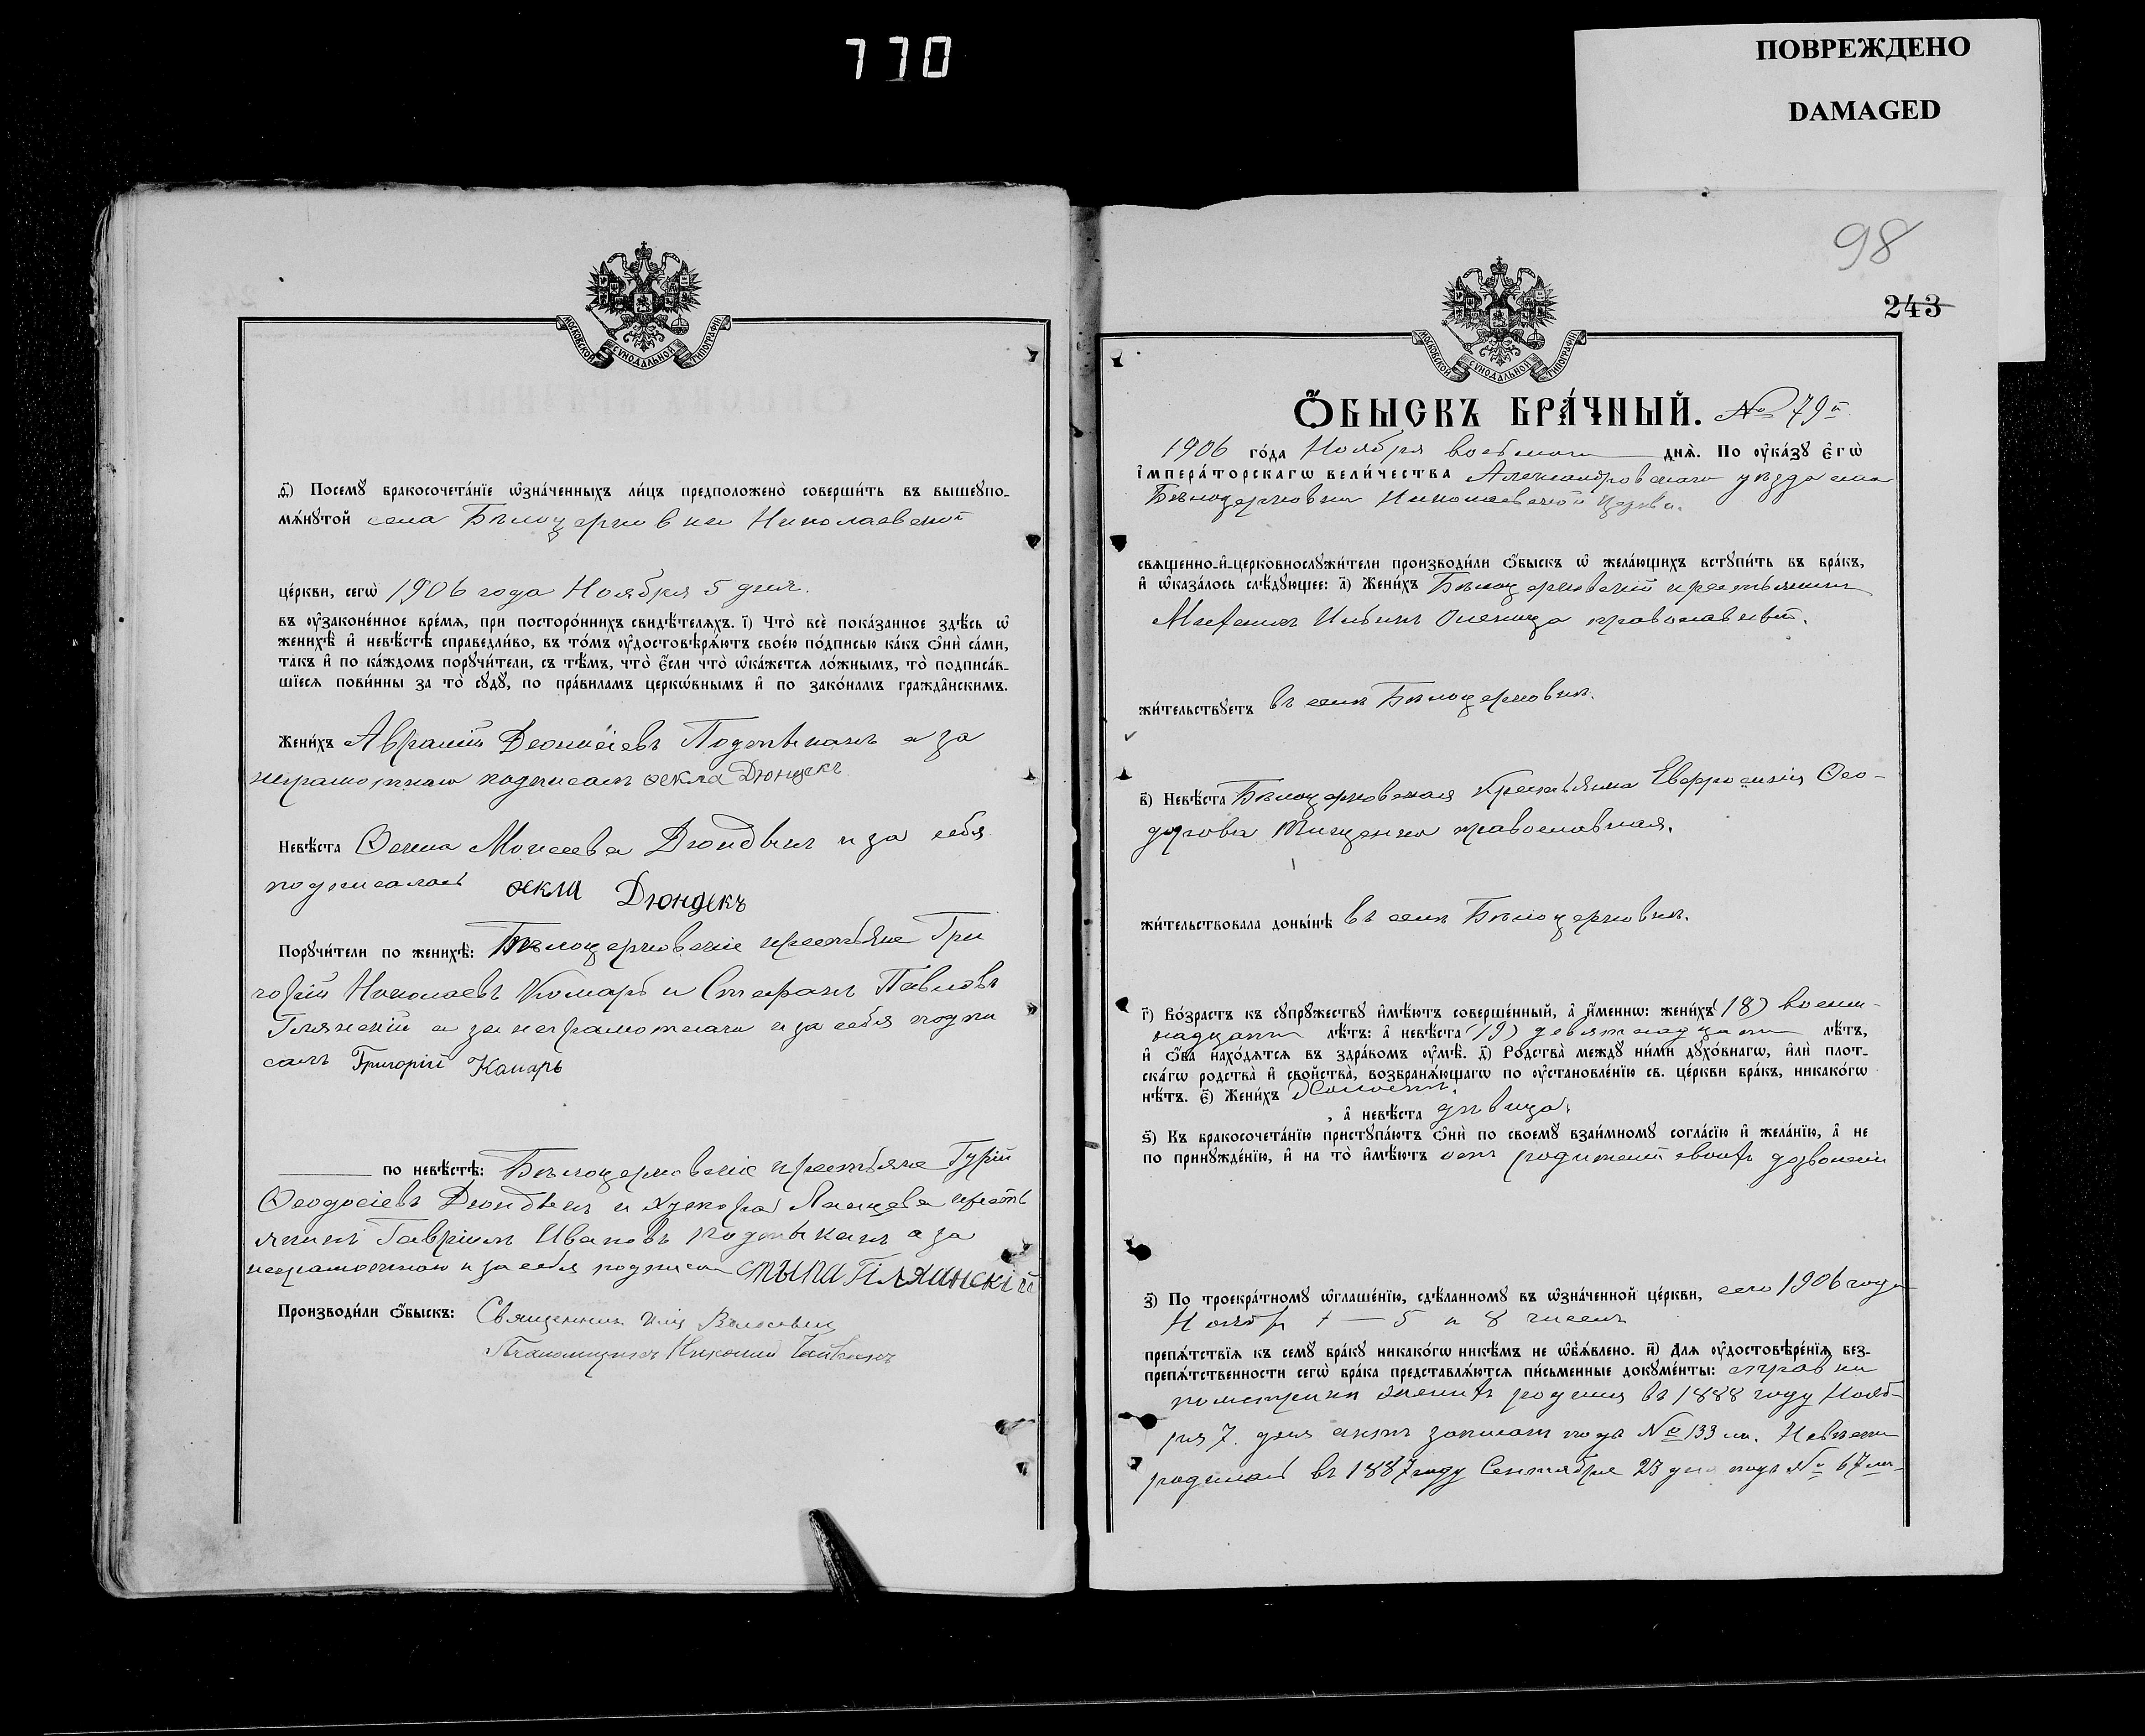 770
ПОВРЕЖДЕНО
DAMAGED
98
243
МОСКОВСКОЙ СѴНОДАЛЬНОЙ ТИПОГРАФІИ
ѳ҃) Посемꙋ бракосочета́нїе ѡ҆зна́ченныхъ ли́цъ предположено̀ соверши́ть въ вышеꙋпо-
мѧ́нꙋтой села Бѣлоцерковки Николаевской
це́ркви, сегѡ̀ 1906 года Ноября 5 дня.
въ ᲂу҆зако́ненное вре́мѧ, при посторо́ннихъ свидѣ́телѧхъ. і҃) Что̀ всѐ пока́занное здѣ́сь ѡ҆
женихѣ̀ и҆ невѣ́стѣ справедли́во, въ то́мъ ᲂу҆достовѣрѧ́ютъ свое́ю по́дписью ка́къ ѻ҆нѝ са́ми,
та́къ и҆ по ка́ждомъ порꙋчи́тели, съ тѣ́мъ, что̀ є҆́сли что̀ ѡ҆ка́жетсѧ ло́жнымъ, то̀ подписа́в-
шїесѧ пови́нны за то̀ сꙋдꙋ̀, по пра́виламъ церкѡ́внымъ и҆ по зако́намъ гражда̂нскимъ.
Жени́хъ Аврамъ Деонисіевъ а за
неграмотнаго подписалъ Ѳекла Дюндекъ
Невѣ́ста Ѳекла Моисеева Дюндыкъ и за себя
подписалась Ѳекла Дюндекъ
Порꙋчи́тели по женихѣ̀: Бѣлоцерковскіе крестьяне Гри
горій Николаевъ Комарь и Стефанъ Павловъ
Гилянскій а за неграмотнаго и за себя подпи
салъ Григорій Камарь
по невѣ́стѣ: Бѣлоцерковскіе крестьяне Гурій
Ѳеодосіевъ Дюндыкъ и хутора кресть
янинъ Гавріилъ Ивановъ а за
неграмотнаго и за себя подписалъ
Производи́ли ѻ҆́быскъ: Священникъ
Псаломщикъ
МОСКОВСКОЙ СѴНОДАЛЬНОЙ ТИПОГРАФІИ
Ѻ҆́БЫСКЪ БРА́ЧНЫЙ. № 79й
1906 го́да Ноября восьмого днѧ̀. По ᲂу҆ка́зꙋ є҆гѡ̀
і҆мпера́торскагѡ вели́чества Александровскаго уѣзда села
Бѣлоцерковки Николаевской церкви.
свѧщенно-и҆-церковнослꙋжи́тели производи́ли ѻ҆́быскъ ѡ҆ жела́ющихъ встꙋпи́ть въ бра́къ,
и҆ ѡ҆каза́лось слѣ́дꙋющее: а҃) Жени́хъ Бѣлоцерковскій крестьянинъ
Ильинъ православный.
жи́тельствꙋетъ въ селѣ Бѣлоцерковкѣ.
в҃) Невѣ́ста Бѣлоцерковская крестьянка Евфросинія Ѳео-
дорова Тищенко православная.
жи́тельствовала доны́нѣ въ селѣ Бѣлоцерковкѣ.
г҃) Во́зрастъ къ сꙋпрꙋ́жествꙋ и҆мѣ́ютъ соверше́нный, а҆ и҆́меннѡ: жени́хъ (18) восем-
надцати лѣ́тъ: а҆ невѣ́ста (19) девятнадцати лѣ́тъ,
и҆ ѻ҆́ба нахо́дѧтсѧ въ здра́вомъ ᲂу҆мѣ̀. д҃) Родства̀ междꙋ̀ ни́ми дꙋхо́внагѡ, и҆лѝ плот-
ска́гѡ родства̀ и҆ сво́йства, возбранѧ́ющагѡ по ᲂу҆становле́нїю св. це́ркви бра́къ, никако́гѡ
нѣ́тъ. є҃) Жени́хъ Холостъ,
, а҆ невѣ́ста дѣвица.
ѕ҃) Къ бракосочета́нїю пристꙋпа́ютъ ѻ҆нѝ по своемꙋ̀ взаи́мномꙋ согла́сїю и҆ жела́нїю, а҆ не
по принꙋжде́нїю, и҆ на то̀ и҆мѣ́ютъ отъ родителей своихъ дозволеніе
з҃) По троекра́тномꙋ ѡ҆глаше́нїю, сдѣ́ланномꙋ въ ѡ҆зна́ченной це́ркви, сего 1906 года
Ноября 1 — 5 и 8 чиселъ
препѧ́тствїѧ къ семꙋ̀ бра́кꙋ никако́гѡ никѣ́мъ не ѡ҆б̾ѧ́влено. и҃) Длѧ ᲂу҆достовѣре́нїѧ без-
препѧ́тственности сегѡ̀ бра́ка представлѧ́ютсѧ пи́сьменные докꙋме́нты: справки
по метрики женихъ родился въ 1888 году Нояб-
ря 7 дня актъ записанъ подъ № 133 м. Невѣста
родилась въ 1887 году Сентября 23 дня подъ № 67